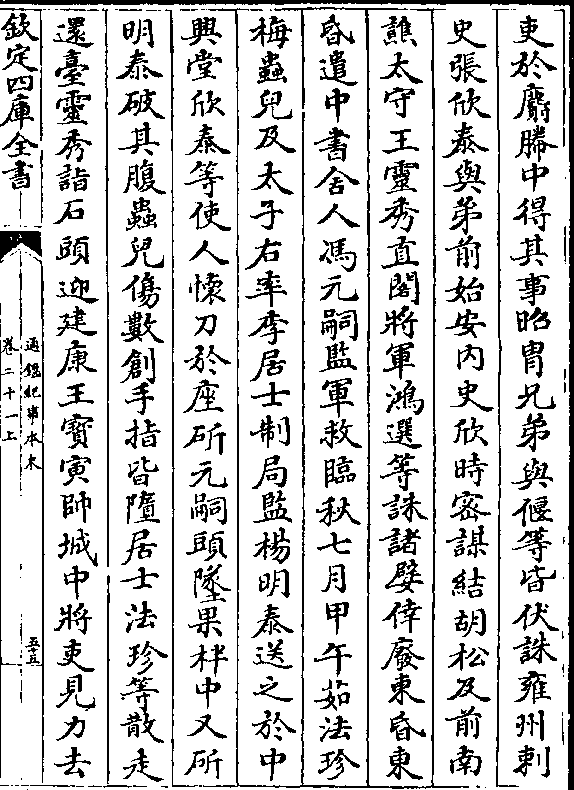 吏於麝幐中得其事昭胄兄弟與偃等皆伏誅雍州刺
史張欣泰與弟前始安内史欣時密謀結胡松及前南
譙太守王靈秀直閤將軍鴻選等誅諸嬖倖廢東昏東
昏遣中書舍人馮元嗣監軍救臨秋七月甲午茹法珍
梅蟲兒及太子右率李居士制局監楊明泰送之於中
興堂欣泰等使人懐刀於座斫元嗣頭墜果柈中又斫
明泰破其腹蟲兒傷數創手指皆墮居士法珍等散走
還臺靈秀詣石頭迎建康王寳寅帥城中將吏見力去
欽定四庫全書
通鑑紀事本末
卷二十一上
五十五